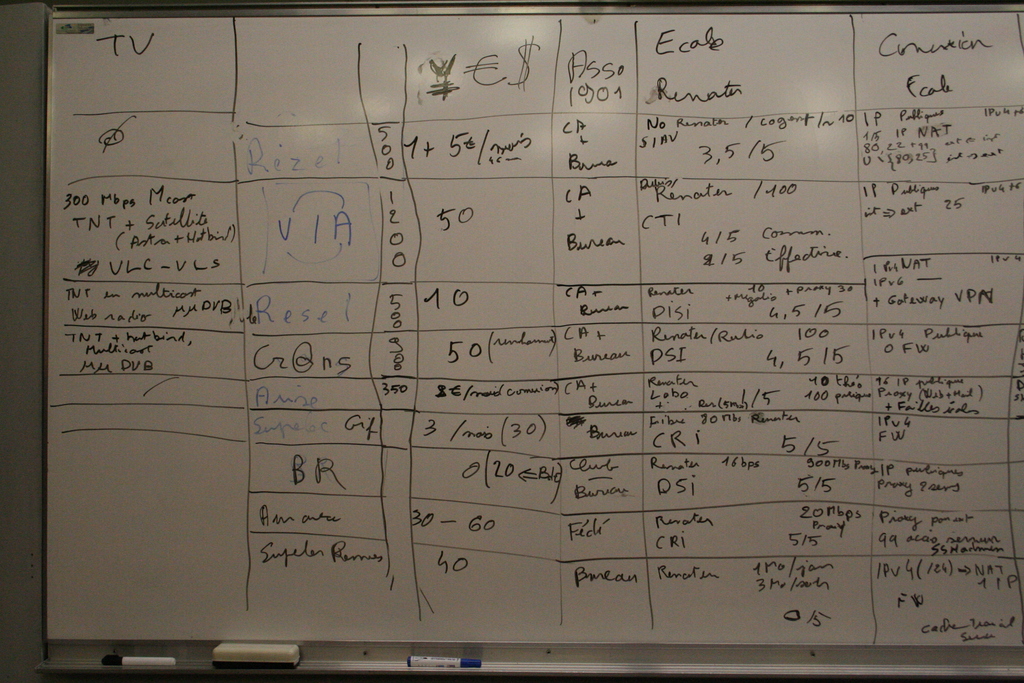 TV
¥ € $
Asso
1901
Ecole
Renater
Connexion
Ecole
Ø
Rézel
500
1 + 5€/mois
CA
+
Bureau
No Renater / Cogent / ~ 10
3,5/5
IP Publiques IPv4
IP NAT
300 Mbps Mcast
TNT + Satellite
(Astra + Hotbird)
VLC - VLS
VIA
1200
50
CA
+
Bureau
Renater /100
CTI
4/5 Comm.
2/5 Effective.
IP Publiques
int => ext 25
TNT en multicast
Web radio µµDVB
Resel
500
10
CA +
Bureau
Renater 10
+ Mégalis + Proxy 30
DISI 4,5/5
IPv4 NAT IPv4
IPv6
+ Gateway VPN
TNT + hotbird,
Multicast
µµDVB
Cr@ns
900
50
CA +
Bureau
Renater/Rubis 100
DSI 4,5/5
IPv4 Publique
0 FW
Arise
350
8€/mois/connexion
CA +
Bureau
Renater 10 théo
100 pratique
/5
16 IP publique
Proxy (Web+Mail)
+ Failles
Supelec Gif
3 /mois (30)
Bureau
Fibre 80 Mbs Renater
CRI 5/5
IPv4
FW
BR
0 (20 <=
Club
Bureau
Renater 1Gbps 900Mbs Proxy
DSI 5/5
IP publiques
Proxy
30 - 60
Fédé
Renater 20Mbps
Proxy
CRI 5/5
Proxy
Supelec Rennes
40
Bureau
Renater 1Mo/jour
3Mo/soir
0/5
IPv4 (/24) => NAT
1 IP
FW